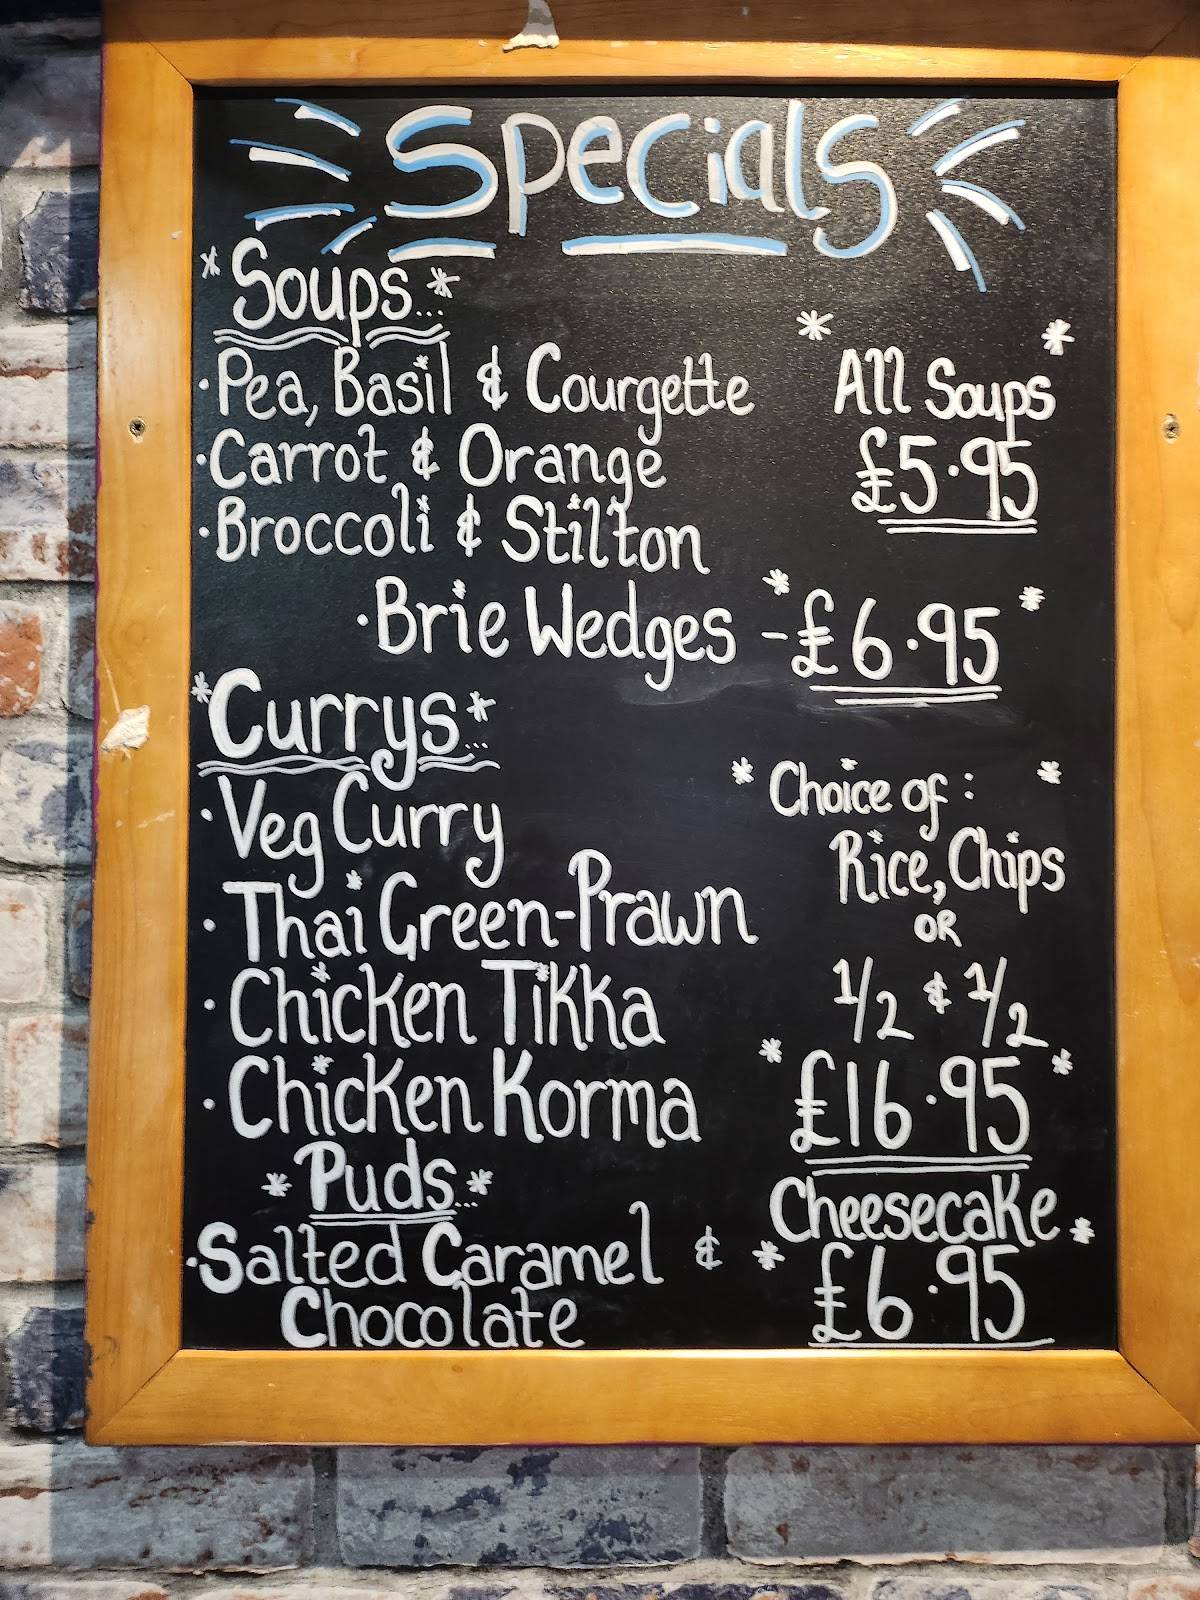 Specials
*Soups...*
·Pea, Basil & Courgette
·Carrot & Orange
·Broccoli & Stilton
* All Soups *
£5.95
·Brie Wedges - *£6.95*
*Currys...*
·Veg Curry
·Thai Green-Prawn
·Chicken Tikka
·Chicken Korma
* Choice of: *
Rice, Chips
OR
1/2 & 1/2
*£16.95*
*Puds...*
·Salted Caramel &
Chocolate
Cheesecake
*£6.95*